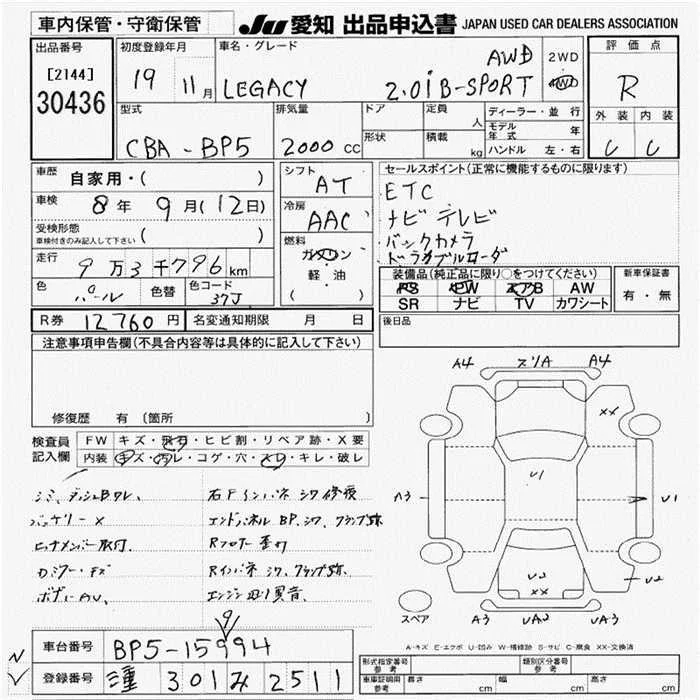 車内保管・守衛保管
JU 愛知 出品申込書 JAPAN USED CAR DEALERS ASSOCIATION
出品番号
[2144]
30436
初度登録年月
19 11月
車名・グレード
LEGACY 2.0i B-SPORT AWD
2WD
4WD
評価点
R
外装 内装
C C
型式
CBA-BP5
排気量
2000 CC
ドア
形状
定員 人
積載 kg
ディーラー・並行
モデル年式 年
ハンドル 左・右
車歴 自家用・( )
車検 8年 9月(12日)
受検形態
車検付きのみ記入して下さい ( )
走行 9万3千796km
色 パール 色替 色コード 37J
シフト
AT
冷房
AAC
燃料
ガソリン
軽・油
( )
セールスポイント(正常に機能するものに限ります)
ETC
ナビ テレビ
バックカメラ
ドラカブルローダ
装備品(純正品に限り○をつけてください)
PS PW エアB AW
SR ナビ TV カワシート
新車保証書
有・無
R券 12760円 名変通知期限 月 日
後日品
注意事項申告欄(不具合内容等は具体的に記入して下さい)
修復歴 有 〔箇所 〕
検査員
記入欄
FW キズ・飛石・ヒビ割・リペア跡・X要
内装 キズ・汚レ・コゲ・穴・スレ・キレ・破レ
シミ、ダッシュBワレ、
バッテリーX
ヒッチメンバー取付.
ボデーAU、
右Fインパネ シワ修復
エンドパネル BP.シワ、クランプ跡
Rフロアー歪み
Rインパネ シワ、クランプ跡.
エンジン廻り異音.
A4 ズリA A4
XX
U1
A3
U1
U2
XX
U2
A3 UA2 UA3
スペア
A-キズ E-エクボ U-凹み W-補修跡 S-サビ C-腐食 XX-交換済
車台番号 BP5-159994
登録番号 301 み 2511
形式指定番号
参考
類別区分番号
参考
車庫証明用
参考
長さ cm 幅 cm 高さ cm